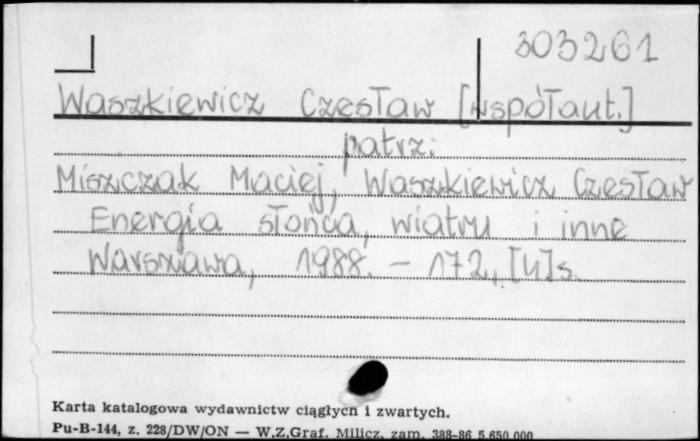 303261
Waszkiewicz Czesław [współaut.]
patrz:
Miszczak Maciej, Waszkiewicz Czesław
Energia słońca, wiatru i inne
Warszawa, 1988. – 172, [4]s.
Karta katalogowa wydawnictw ciągłych i zwartych.
Pu-B-144, z. 228/DW/ON — W.Z.Graf. Milicz, zam. 388-86 5.650.000